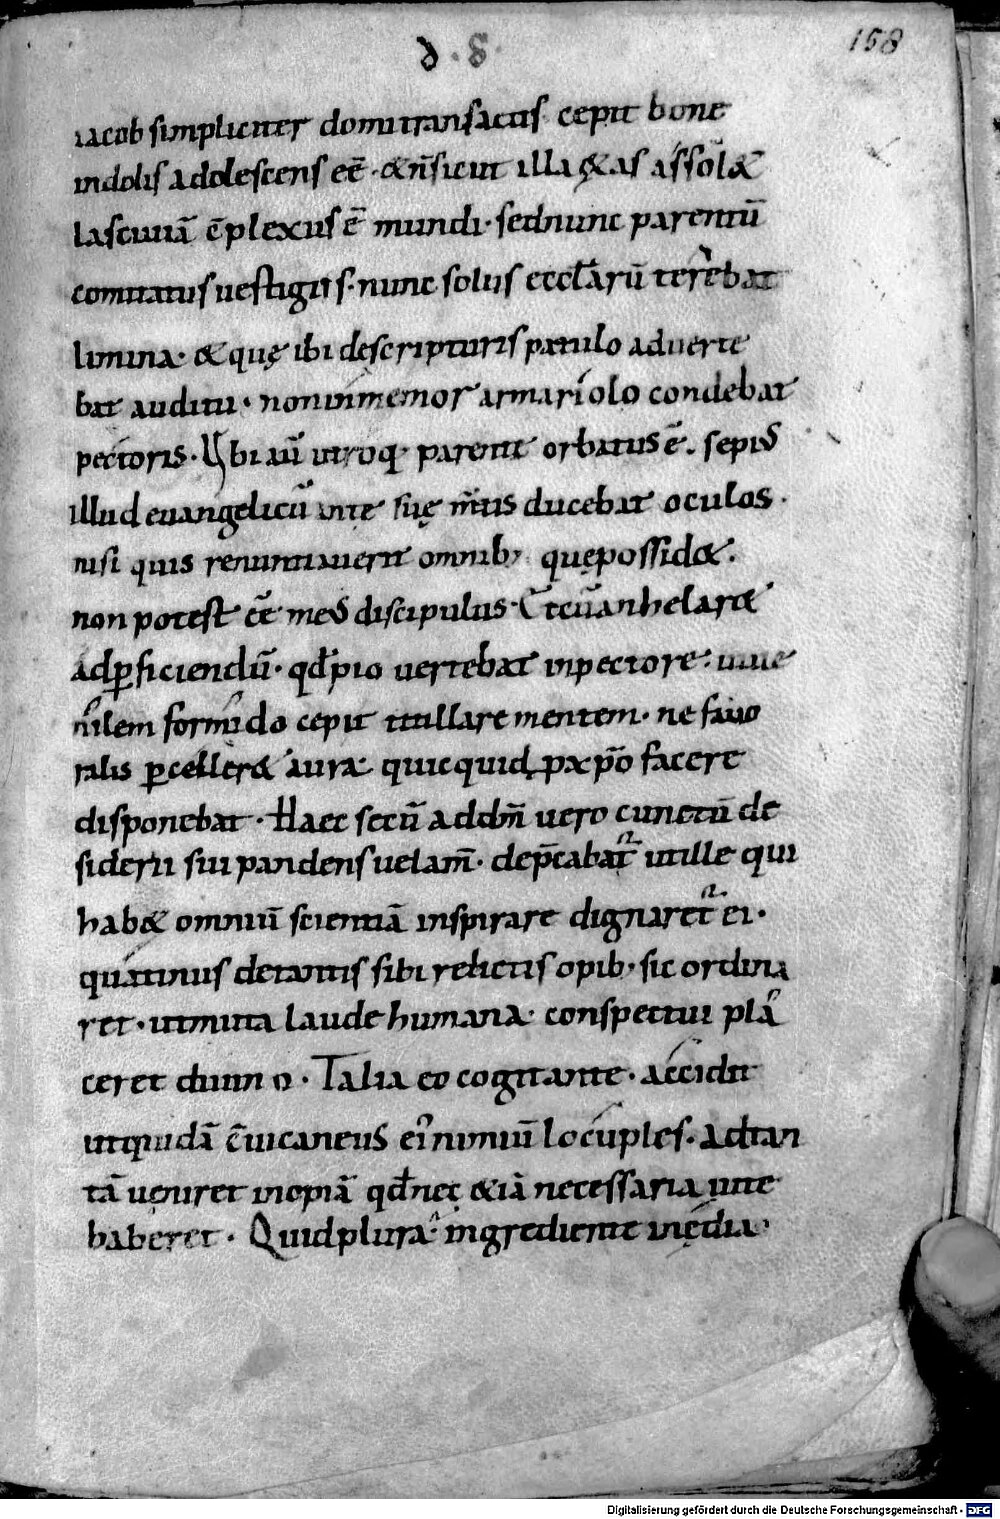 d · S ·
158
iacob simpliciter domi transactis cepit bone
indolis adolescens eē · &n̄ sicut illa ę&as assol&
lasciuiā c̄plexus ē mundi · sed nunc parentū
comitatus uestigiis · nunc solus eccl̄arū terebat
limina · & quę ibi de scripturis patulo aduerte
bat auditu · non inmemor armariolo condebat
pectoris · Vbi aū utroq · parente orbatus ē · sepius
illud euangelicū inte suę m̄tis ducebat oculos ·
nisi quis renuntiauerit omnib; quę possid& ·
non potest eē meus discipulus · Et cū anhelar&
ad ꝑficiendū · qđ pio uertebat in pectore · iuue
nilem formido cepit titillare mentem · ne fauo
ralis ꝑceller& aura quicquid p xp̄o facere
disponebat · Haec secū ad dm̄ uero cunctū de
siderii sui pandens uelam̄ · dep̄cabat᷑ ut ille qui
hab& omniū scientiā inspirare dignaret᷑ ei ·
quatinus de tantis sibi relictis opib; sic ordina
ret · ut muta laude humana · conspectui pla
ceret diuino · Talia eo cogitante · accidit
ut quidā c̄uicaneus ei nimiū locuples · ad tan
tā ueniret inopiā qđ nec &iā necessaria uite
haberet · Quid plura · ingrediente inędia
Digitalisierung gefördert durch die Deutsche Forschungsgemeinschaft - DFG